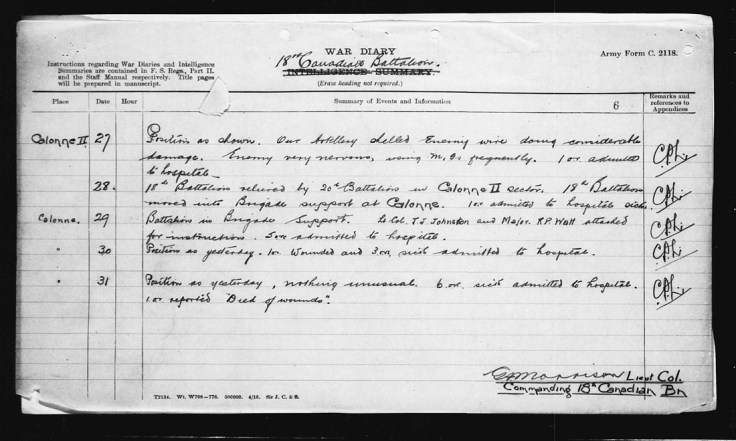 WAR DIARY
18th Canadian Battalion.
INTELLIGENCE SUMMARY.
(Erase heading not required.)
Army Form C. 2118.
Instructions regarding War Diaries and Intelligence
Summaries are contained in F. S. Regs., Part II.
and the Staff Manual respectively. Title pages
will be prepared in manuscript.
Place Date Hour Summary of Events and Information 6 Remarks and references to Appendices
Calonne II 27 Position as shown. Our Artillery shelled Enemy wire doing considerable
damage. Enemy very nervous, using M.Gs frequently. 1 o.r. admitted
to hospital.
28. 18th Battalion relieved by 20th Battalion in Calonne II sector. 18th Battalion
moved into Brigade support at Calonne. 1 o.r. admitted to hospital sick.
Calonne. 29 Battalion in Brigade Support. Lt Col. T.J. Johnston and Major. R.P. Watt attached
for instruction. 5 o.r. admitted to hospital.
" 30 Position as yesterday. 1 o.r. Wounded and 3 o.r. sick admitted to hospital.
" 31 Position as yesterday, nothing unusual. 6 o.r. sick admitted to hospital.
1 o.r. reported "Died of wounds".
Morrison Lieut Col.
Commanding 18th Canadian Bn
T2134. Wt. W708—776. 500000. 4/15. Sir J. C. & S.